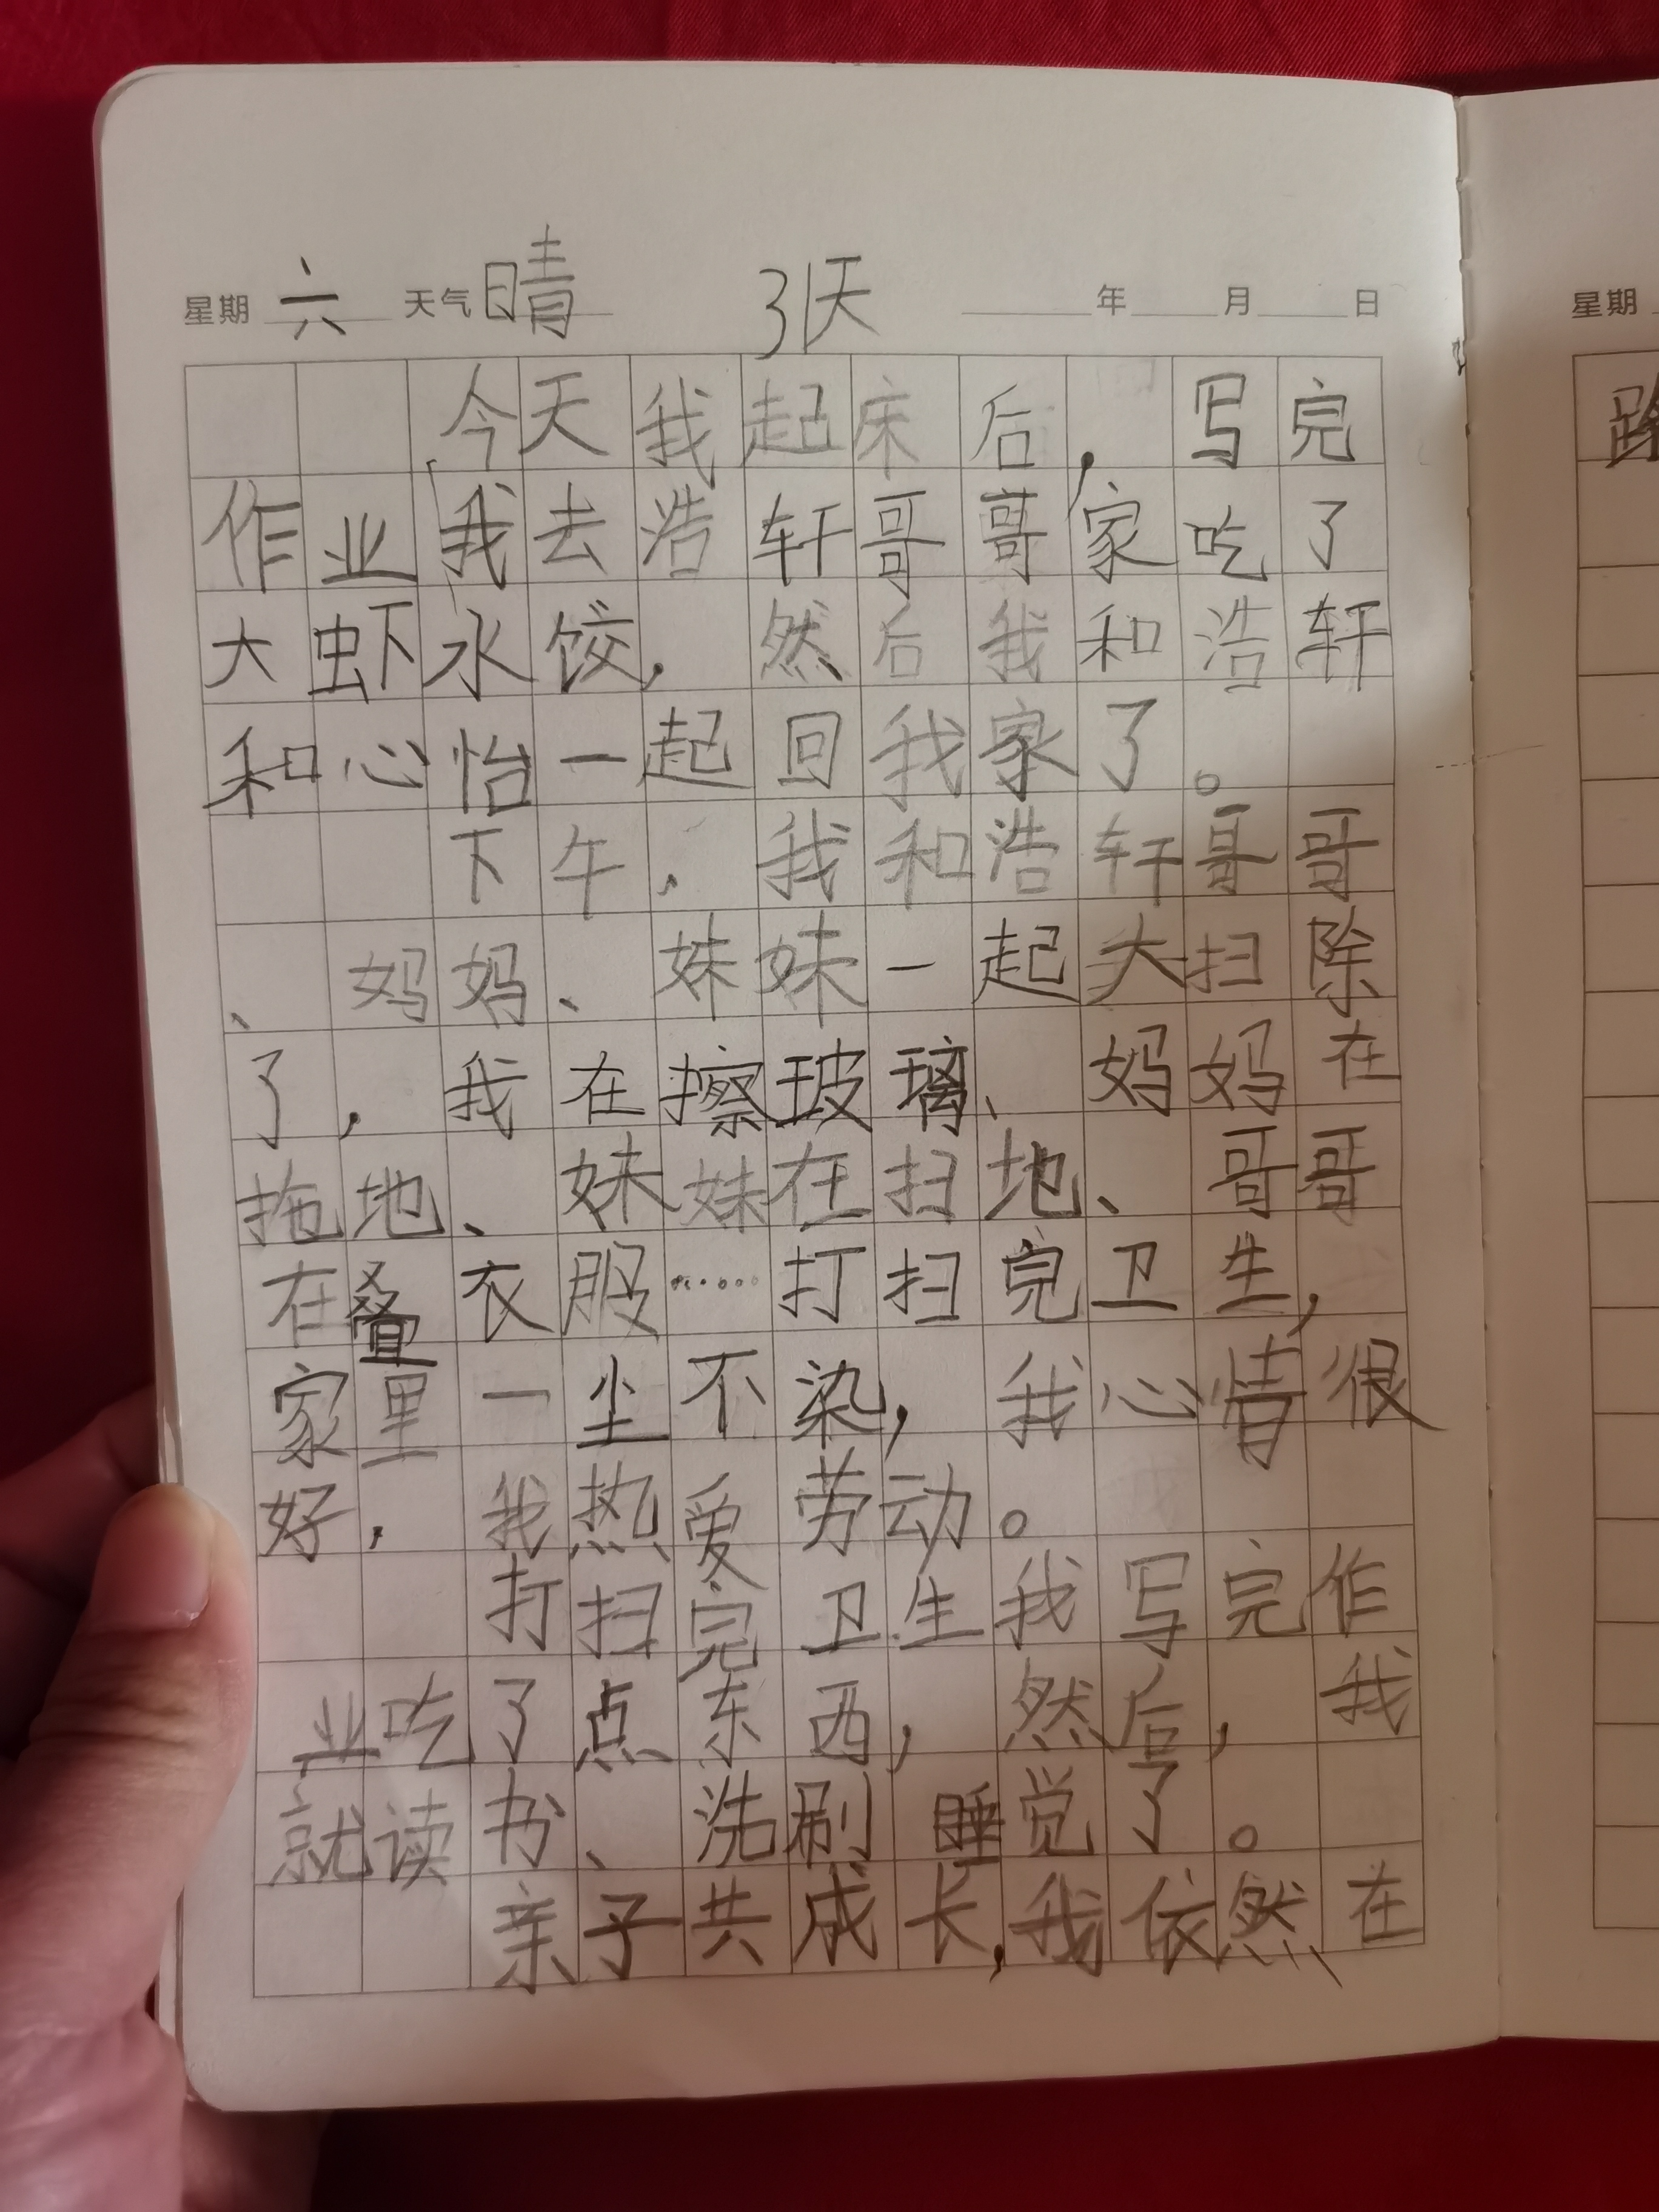 星期 六 天气 晴 31天 年 月 日
今天我起床后，写完
作业我去浩轩哥哥家吃了
大虾水饺，然后我和浩轩
和心怡一起回我家了。
下午，我和浩轩哥哥
、妈妈、妹妹一起大扫除
了，我在擦玻璃、妈妈在
拖地、妹妹在扫地、哥哥
在叠衣服……打扫完卫生，
家里一尘不染，我心情很
好，我热爱劳动。
打扫完卫生我写完作
业吃了点东西，然后，我
就读书、洗刷睡觉了。
亲子共成长，我依然在
星期